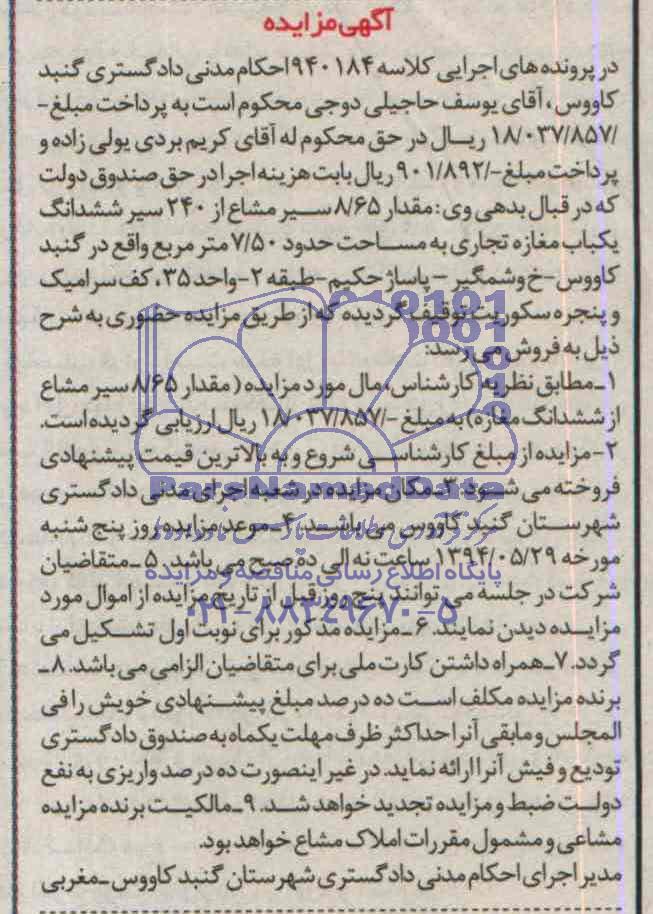 آگهی مزایده
در پرونده های اجرایی کلاسه ۹۴۰۱۸۴ احکام مدنی دادگستری گنبد
کاووس، آقای یوسف حاجیلی دوجی محکوم است به پرداخت مبلغ -
/۱۸/۰۳۷/۸۵۷ ریال در حق محکوم له آقای کریم بردی یولی زاده و
پرداخت مبلغ -/۹۰۱/۸۹۲ ریال بابت هزینه اجرا در حق صندوق دولت
که در قبال بدهی وی: مقدار ۸/۶۵ سیر مشاع از ۲۴۰ سیر ششدانگ
یکباب مغازه تجاری به مساحت حدود ۷/۵۰ متر مربع واقع در گنبد
کاووس -خ وشمگیر - پاساژ حکیم -طبقه ۲- واحد ۳۵، کف سرامیک
و پنجره سکوریت توقیف گردیده که از طریق مزایده حضوری به شرح
ذیل به فروش می رسد:
۱ـ مطابق نظریه کارشناس، مال مورد مزایده ( مقدار ۸/۶۵ سیر مشاع
از ششدانگ مغازه) به مبلغ -/۱۸/۰۳۷/۸۵۷ ریال ارزیابی گردیده است.
۲- مزایده از مبلغ کارشناسی شروع و به بالاترین قیمت پیشنهادی
فروخته می شود. ۳ـ مکان مزایده در شعبه اجرای مدنی دادگستری
شهرستان گنبد کاووس می باشد. ۴ـ موعد مزایده روز پنج شنبه
مورخه ۱۳۹۴/۰۵/۲۹ ساعت نه الی ده صبح می باشد. ۵ ـ متقاضیان
شرکت در جلسه می توانند پنج روز قبل از تاریخ مزایده از اموال مورد
مزایده دیدن نمایند. ۶ ـ مزایده مذکور برای نوبت اول تشکیل می
گردد. ۷ـ همراه داشتن کارت ملی برای متقاضیان الزامی می باشد. ۸ ـ
برنده مزایده مکلف است ده درصد مبلغ پیشنهادی خویش را فی
المجلس و مابقی آنرا حداکثر ظرف مهلت یکماه به صندوق دادگستری
تودیع و فیش آنرا ارائه نماید. در غیر اینصورت ده درصد واریزی به نفع
دولت ضبط و مزایده تجدید خواهد شد. ۹ـ مالکیت برنده مزایده
مشاعی و مشمول مقررات املاک مشاع خواهد بود.
مدیر اجرای احکام مدنی دادگستری شهرستان گنبد کاووس ـ مغربی
ParsNamadData
پایگاه اطلاع رسانی مناقصه و مزایده
۰۲۱-۸۸۳۴۹۶۷۰-۵